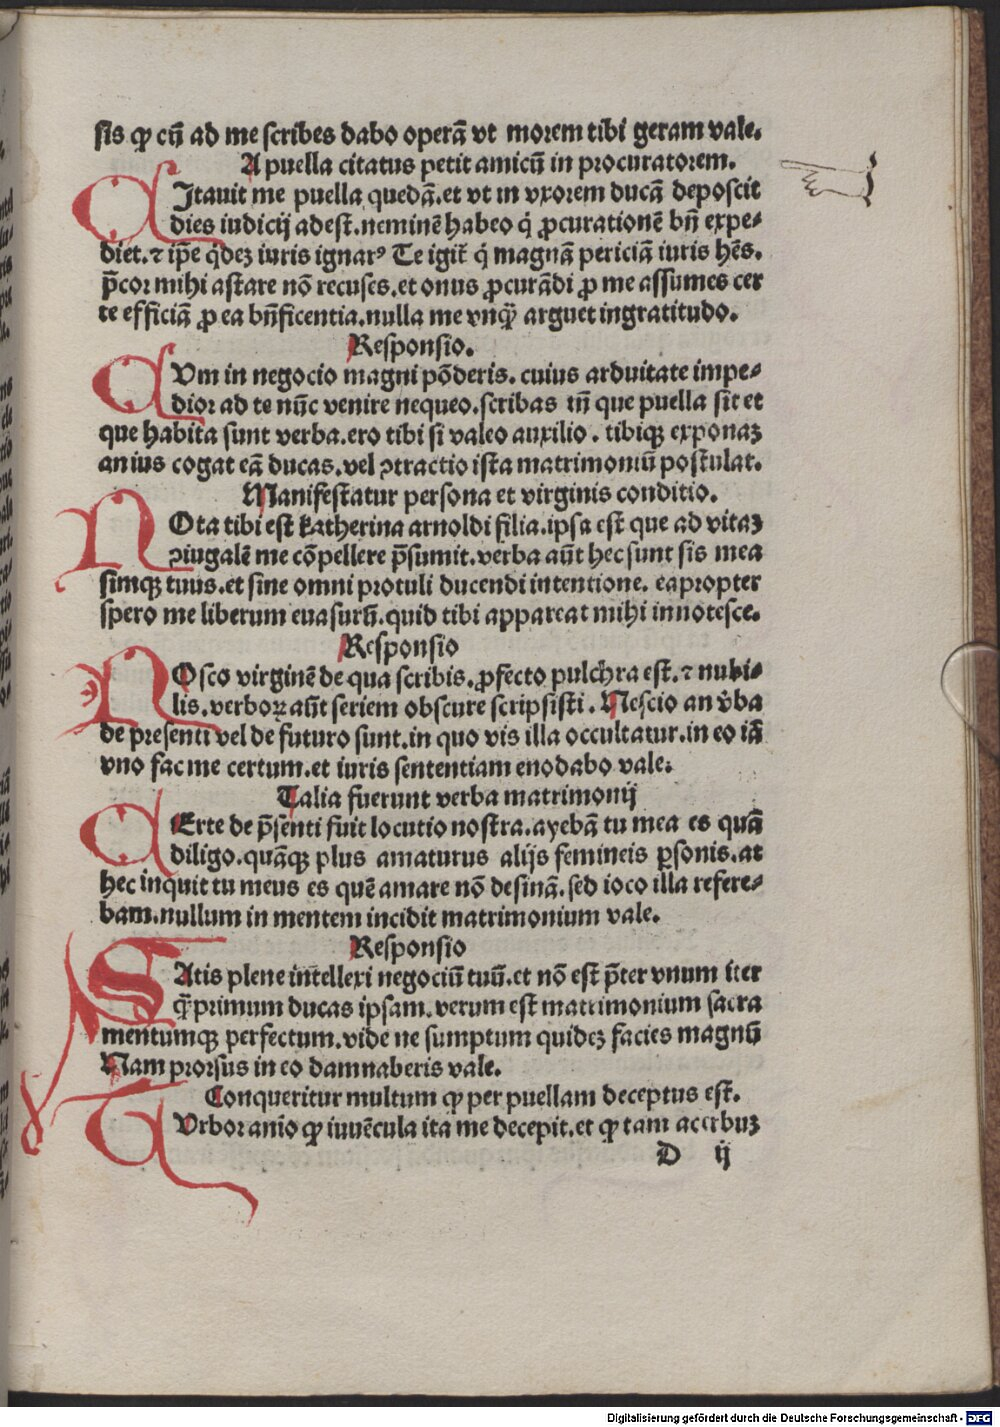 sis ꝙ cū ad me scribes dabo operā vt morem tibi geram vale.
A puella citatus petit amicū in procuratorem.
CItauit me puella quedā. et vt in vxorem ducā deposcit
dies iudicij adest. neminē habeo q̇ ꝓcurationē bn̄ expe-
diet. ⁊ ip̄e q̇dez iuris ignarꝰ Te igit̄ q̇ magnā periciā iuris hēs.
p̄cor mihi astare nō recuses. et onus ꝓcurādi ꝓ me assumes cer
te efficiā ꝓ ea bn̄ficentia. nulla me vnq̄ȝ arguet ingratitudo.
Responsio.
CVm in negocio magni pōderis. cuius arduitate impe-
dior ad te nūc venire nequeo. scribas tn̄ que puella sit et
que habita sunt verba. ero tibi si valeo auxilio. tibiqꝫ exponaz
an ius cogat eā ducas. vel ꝯtractio ista matrimoniū postulat.
Manifestatur persona et virginis conditio.
NOta tibi est katherina arnoldi filia. ipsa est que ad vitaz
ꝯiugalē me cōpellere p̄sumit. verba aūt hec sunt sis mea
simqꝫ tuus. et sine omni protuli ducendi intentione. eapropter
spero me liberum euasurū. quid tibi appareat mihi innotesce.
Responsio
NOsco virginē de qua scribis. ꝓfecto pulchra est. ⁊ nubi-
lis. verboꝝ aūt seriem obscure scripsisti. Nescio an v̄ba
de presenti vel de futuro sunt. in quo vis illa occultatur. in eo iā
vno fac me certum. et iuris sententiam enodabo vale.
Talia fuerunt verba matrimonij
CErte de p̄senti fuit locutio nostra. ayebā tu mea es quā
diligo. quāqꝫ plus amaturus alijs femineis ꝑsonis. at
hec inquit tu meus es quē amare nō desinā. sed ioco illa refere-
bam. nullum in mentem incidit matrimonium vale.
Responsio
SAtis plene intellexi negociū tuū. et nō est p̄ter vnum iter
q̄ȝprimum ducas ipsam. verum est matrimonium sacra
mentumqꝫ perfectum. vide ne sumptum quidez facies magnū
Nam prorsus in eo damnaberis vale.
Conqueritur multum ꝙ per puellam deceptus est.
TVrbor anīo ꝙ iuuēcula ita me decepit. et ꝙ tam acerbuz
D ij
Digitalisierung gefördert durch die Deutsche Forschungsgemeinschaft - DFG